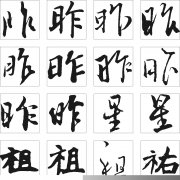 昨昨昨昨
昨昨昨昨
昨昨星星
祖祖祖祐